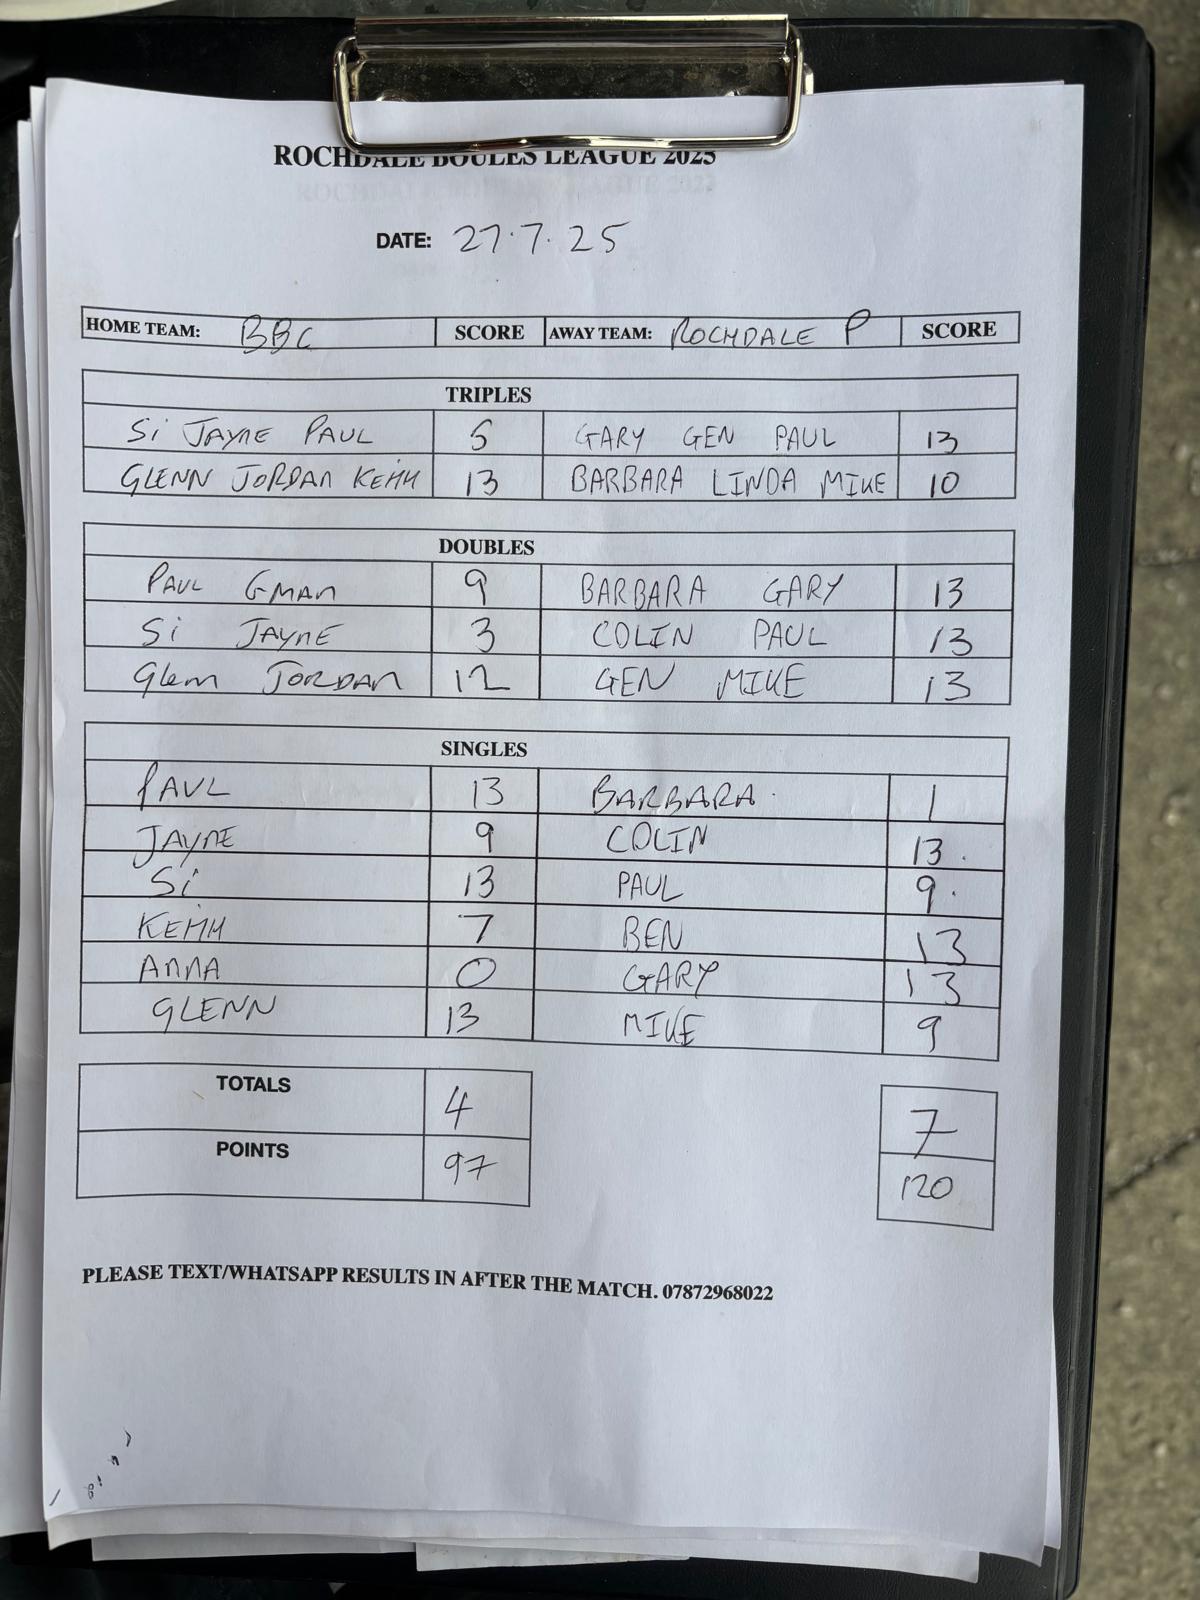 ROCHDALE BOULES LEAGUE 2025
DATE: 27.7.25
HOME TEAM: BBC SCORE AWAY TEAM: ROCHDALE P SCORE
TRIPLES
Si JAYNE PAUL 5 GARY GEN PAUL 13
GLENN JORDAN KEITH 13 BARBARA LINDA MIKE 10
DOUBLES
PAUL GMAN 9 BARBARA GARY 13
Si JAYNE 3 COLIN PAUL 13
Glenn JORDAN 12 GEN MIKE 13
SINGLES
PAUL 13 BARBARA 1
JAYNE 9 COLIN 13
Si 13 PAUL 9
KEITH 7 BEN 13
ANNA 0 GARY 13
GLENN 13 MIKE 9
TOTALS 4 7
POINTS 97 120
PLEASE TEXT/WHATSAPP RESULTS IN AFTER THE MATCH. 07872968022